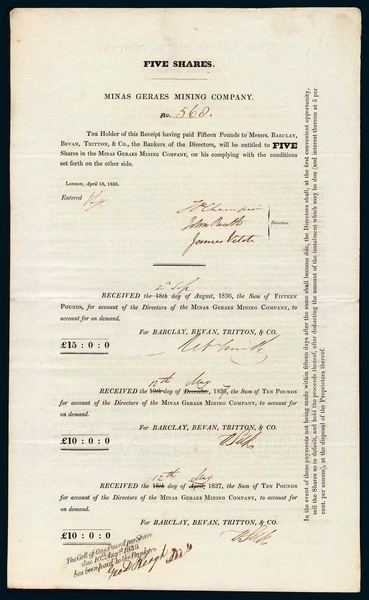 FIVE SHARES.
MINAS GERAES MINING COMPANY.
No. 568.
THE Holder of this Receipt having paid Fifteen Pounds to Messrs. BARCLAY,
BEVAN, TRITTON, & Co., the Bankers of the Directors, will be entitled to FIVE
Shares in the MINAS GERAES MINING COMPANY, on his complying with the conditions
set forth on the other side.
LONDON, April 18, 1836.
Entered
Champion
John Routh
James Vetch
Directors.
2 Sep
RECEIVED the 18th day of August, 1836, the Sum of FIFTEEN
POUNDS, for account of the Directors of the MINAS GERAES MINING COMPANY, to
account for on demand.
For BARCLAY, BEVAN, TRITTON, & CO.
£15 : 0 : 0
May
RECEIVED the day of December, 1836, the Sum of TEN POUNDS
for account of the Directors of the MINAS GERAES MINING COMPANY, to account for
on demand.
For BARCLAY, BEVAN, TRITTON, & CO.
£10 : 0 : 0
12th May
RECEIVED the 18th day of April, 1837, the Sum of TEN POUNDS
for account of the Directors of the MINAS GERAES MINING COMPANY, to account for
on demand.
For BARCLAY, BEVAN, TRITTON, & CO.
£10 : 0 : 0
The Call of One Pound per Share
due 10th Augst 1839
has been paid to the Bankers.
Geo D Keogh Secy
In the event of these payments not being made within fifteen days after the same shall become due, the Directors shall, at the first convenient opportunity,
sell the Shares so in default, and hold the proceeds thereof, after deducting the amount of the instalment which may be due (and interest thereon at 5 per
cent. per annum), at the disposal of the Proprietors thereof.